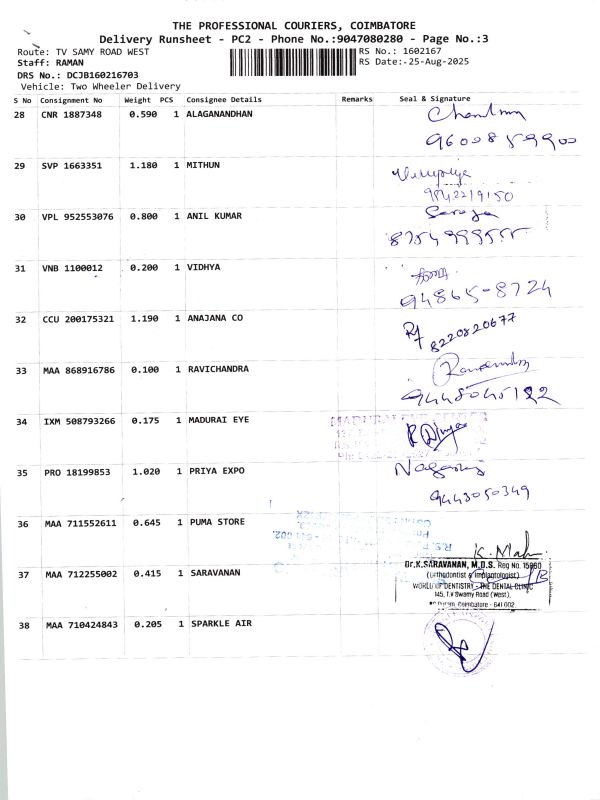 THE PROFESSIONAL COURIERS, COIMBATORE
Delivery Runsheet - PC2 - Phone No.:9047080280 - Page No.:3
Route: TV SAMY ROAD WEST
RS No.: 1602167
Staff: RAMAN
RS Date:-25-Aug-2025
DRS No.: DCJB160216703
Vehicle: Two Wheeler Delivery
S No Consignment No Weight PCS Consignee Details Remarks Seal & Signature
28 CNR 1887348 0.590 1 ALAGANANDHAN
9600859900
29 SVP 1663351 1.180 1 MITHUN
9842219150
30 VPL 952553076 0.800 1 ANIL KUMAR
31 VNB 1100012 0.200 1 VIDHYA
94865-8724
32 CCU 200175321 1.190 1 ANAJANA CO
8220820677
33 MAA 868916786 0.100 1 RAVICHANDRA
34 IXM 508793266 0.175 1 MADURAI EYE
35 PRO 18199853 1.020 1 PRIYA EXPO
9443050349
36 MAA 711552611 0.645 1 PUMA STORE
37 MAA 712255002 0.415 1 SARAVANAN
Dr.K.SARAVANAN, M.D.S. Reg No. 15060
(Orthodontist & Implantologist)
WORLD OF DENTISTRY - THE DENTAL CLINIC
145, T.V Swamy Road (West),
Coimbatore - 641 002.
38 MAA 710424843 0.205 1 SPARKLE AIR